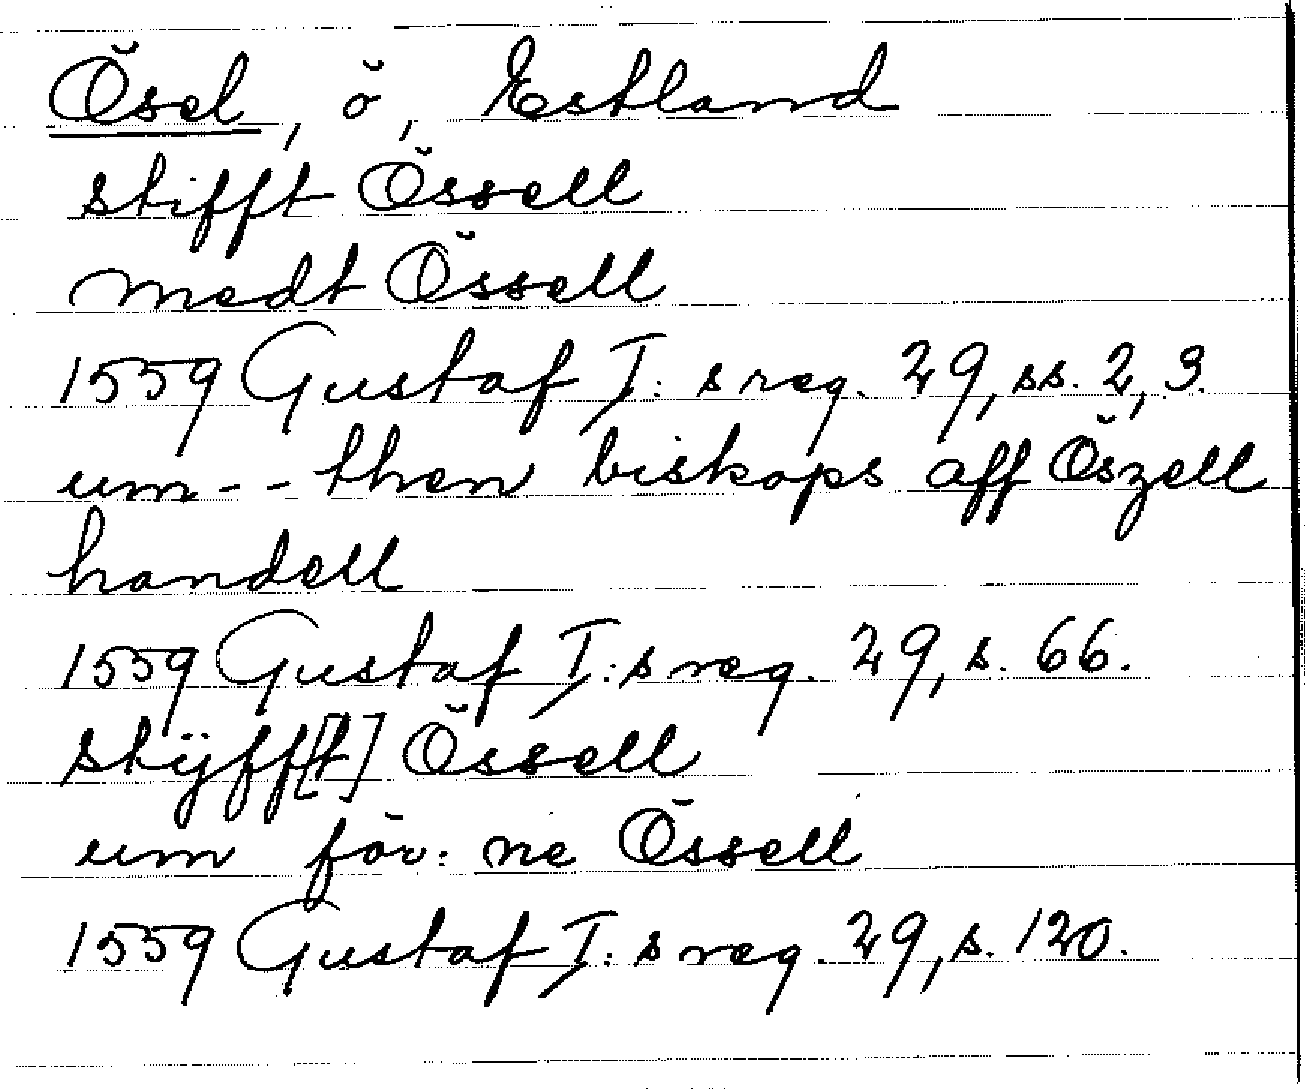 Ösel, ö, Estland
stifft Össell
medt Össell
1559 Gustaf I:s reg. 29, ss. 2, 3.
um -- then biskops aff Öszell
handell
1559 Gustaf I:s reg. 29, s. 66.
stÿff[t] Össell
um för:ne Össell
1559 Gustaf I:s reg. 29, s. 120.